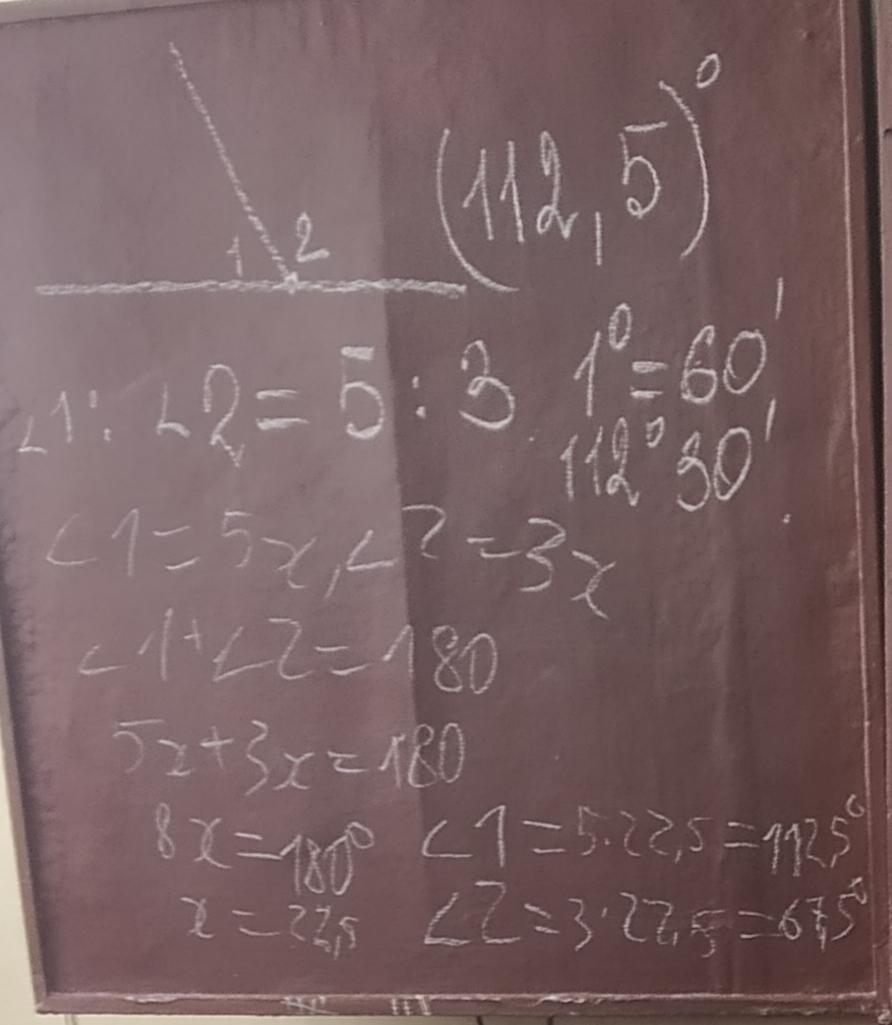 1 2
(112,5)°
∠1 : ∠2 = 5 : 3
1° = 60'
112° 30'.
∠1 = 5x, ∠2 = 3x
∠1 + ∠2 = 180
5x + 3x = 180
8x = 180°
x = 22,5
∠1 = 5·22,5 = 112,5°
∠2 = 3·22,5 = 67,5°